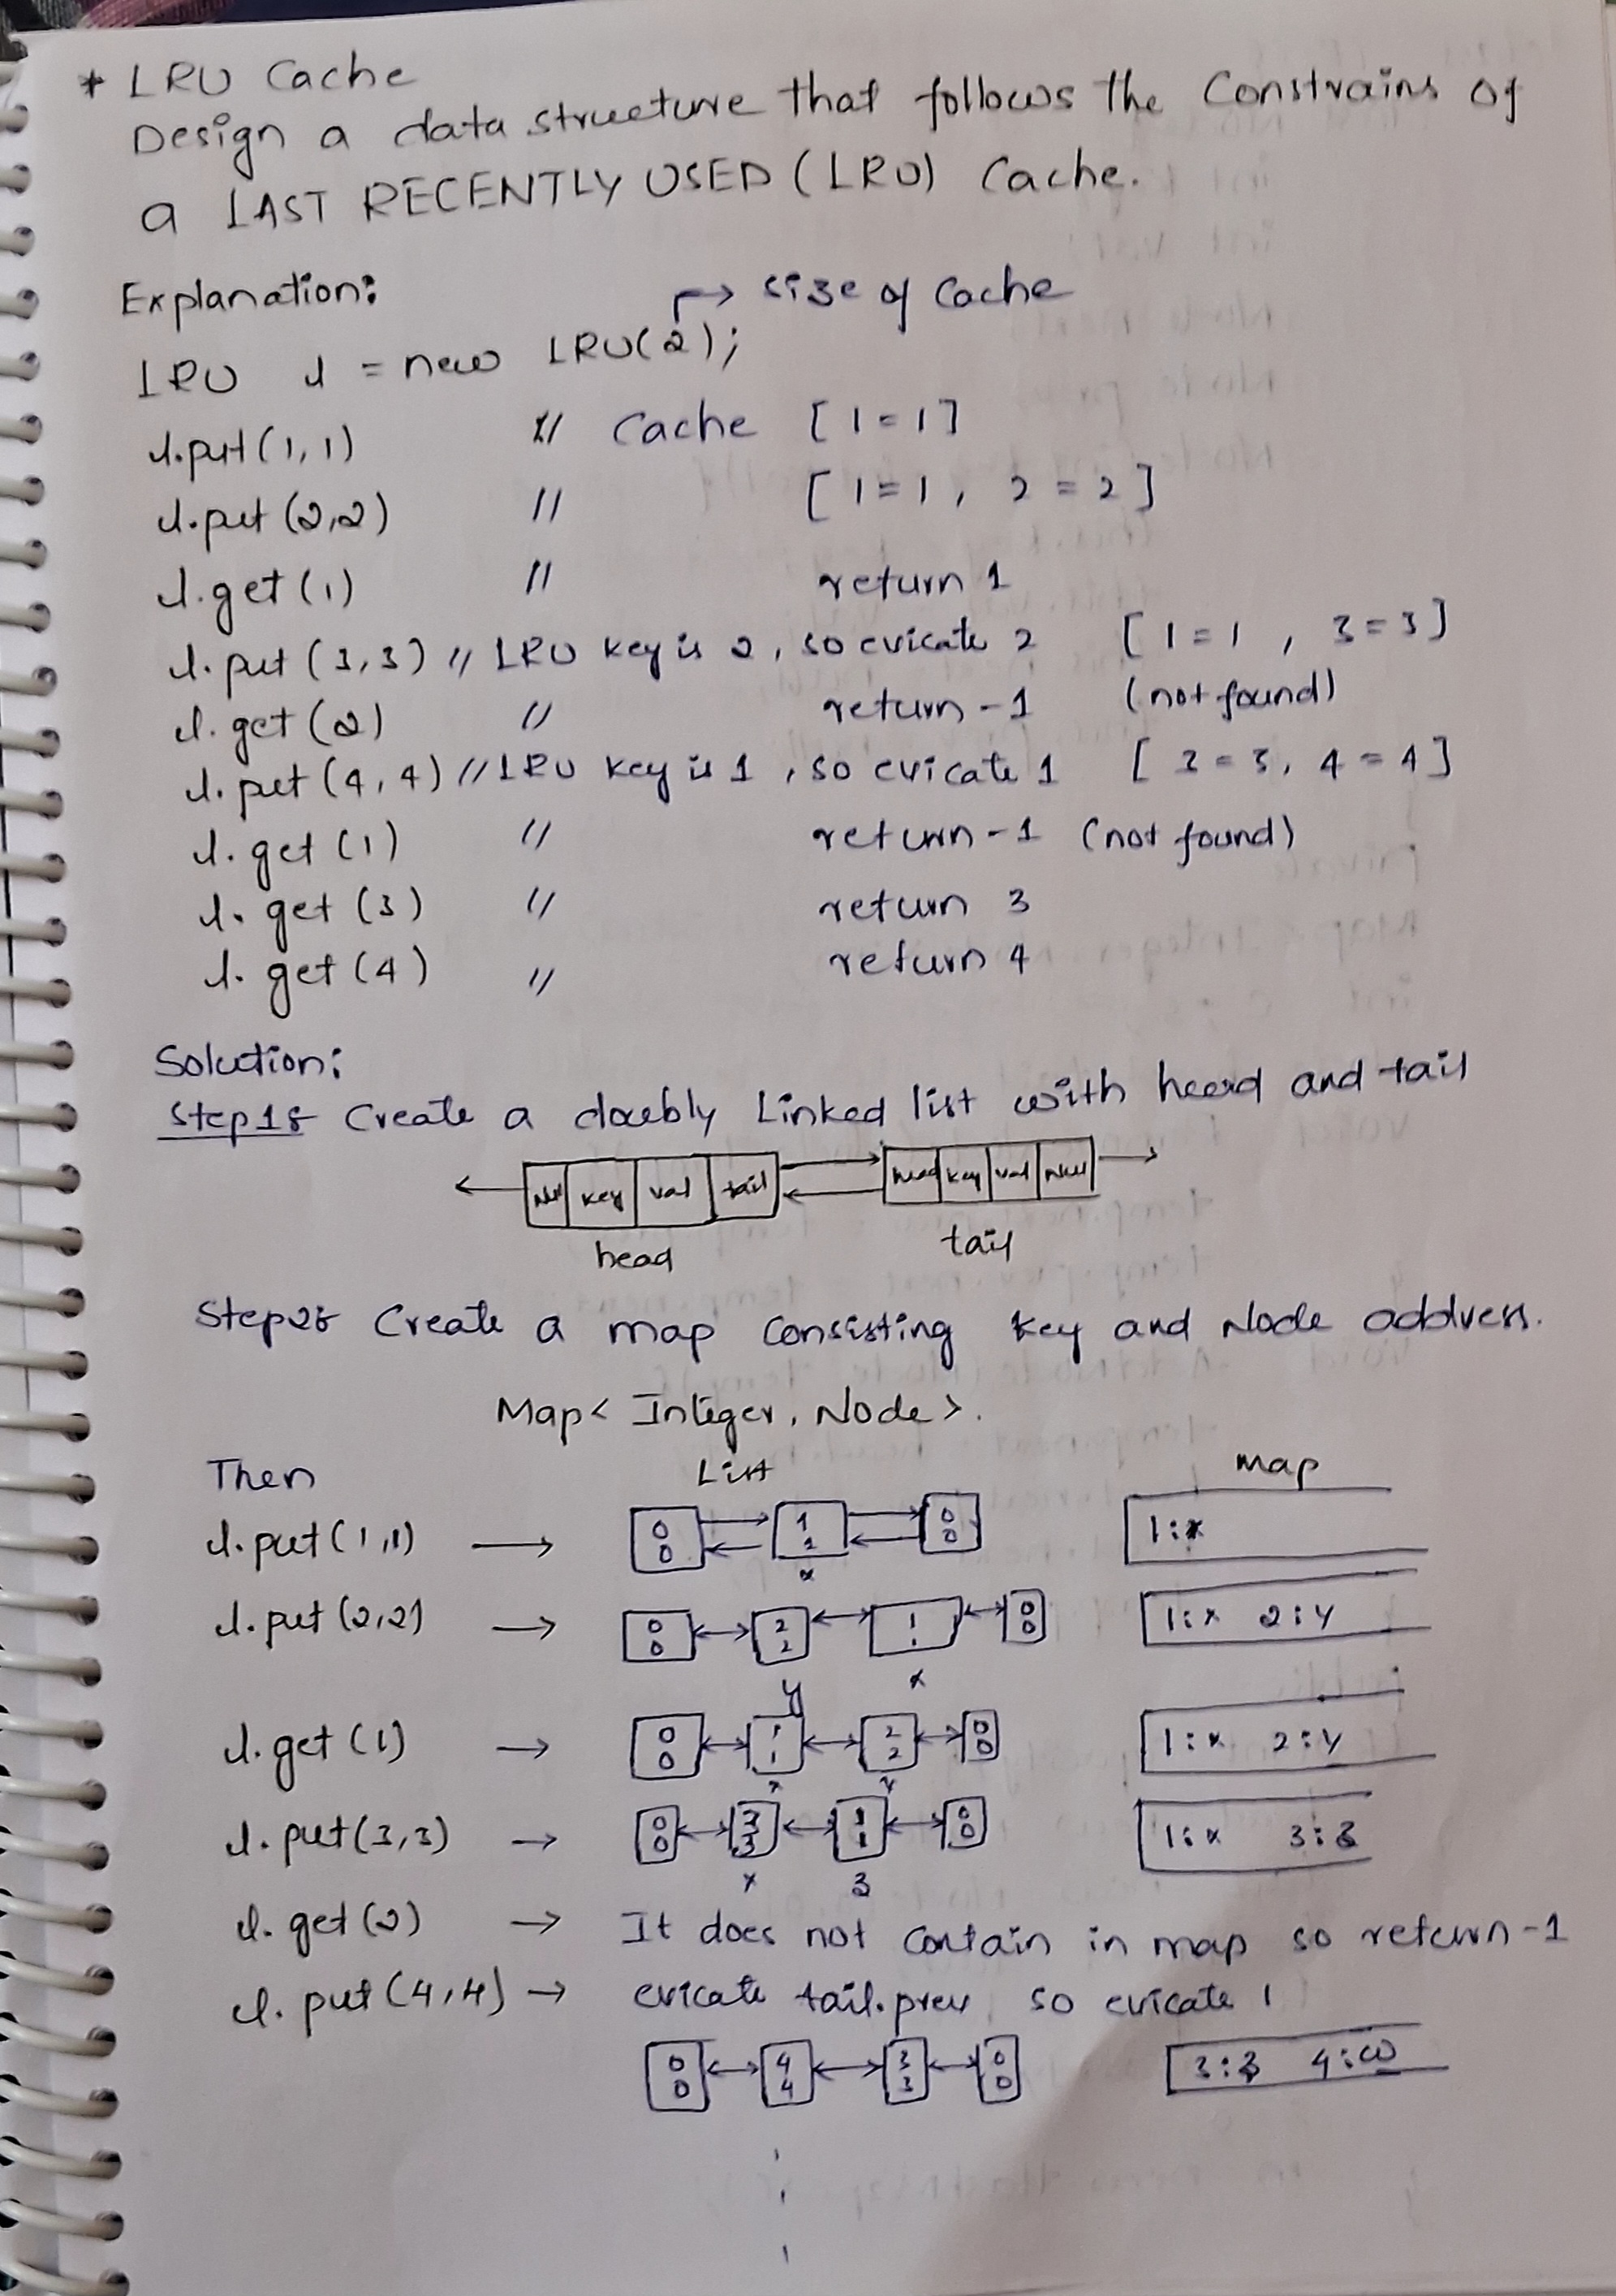 * LRU Cache
Design a data structure that follows the Constrains of
a LAST RECENTLY USED (LRU) Cache.
Explanation:
↱→ size of Cache
LRU l = new LRU(2);
l.put(1,1) // Cache [1=1]
l.put(2,2) // [1=1, 2=2]
l.get(1) // return 1
l.put(3,3) // LRU key is 2, so evicate 2 [1=1, 3=3]
l.get(2) // return -1 (not found)
l.put(4,4) // LRU key is 1, so evicate 1 [3=3, 4=4]
l.get(1) // return -1 (not found)
l.get(3) // return 3
l.get(4) // return 4
Solution:
Step 1: Create a doubly Linked list with head and tail
Null key val tail head key val Null
head tail
Step 2: Create a map consisting key and Node address.
Map< Integer, Node>.
Then List map
l.put(1,1) → 0 0 1 1 0 0 1:x
x
l.put(2,2) → 0 0 2 2 1 1 0 0 1:x 2:y
y x
l.get(1) → 0 0 1 1 2 2 0 0 1:x 2:y
x y
l.put(3,3) → 0 0 3 3 1 1 0 0 1:x 3:z
x 3
l.get(2) → It does not contain in map so return -1
l.put(4,4) → evicate tail.prev, so evicate 1
0 0 4 4 3 3 0 0 3:z 4:w